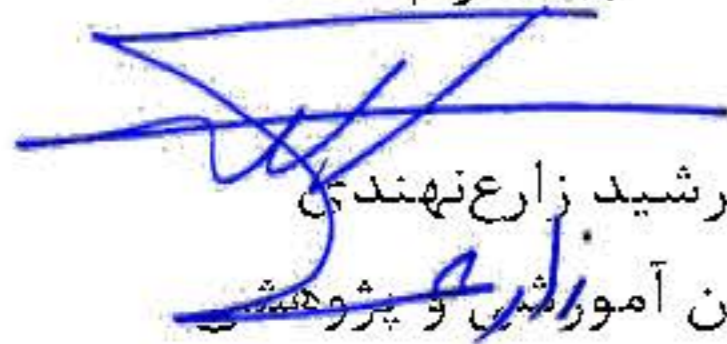 رشید زارع‌نهندی
ن آموزشی و پژوهشی